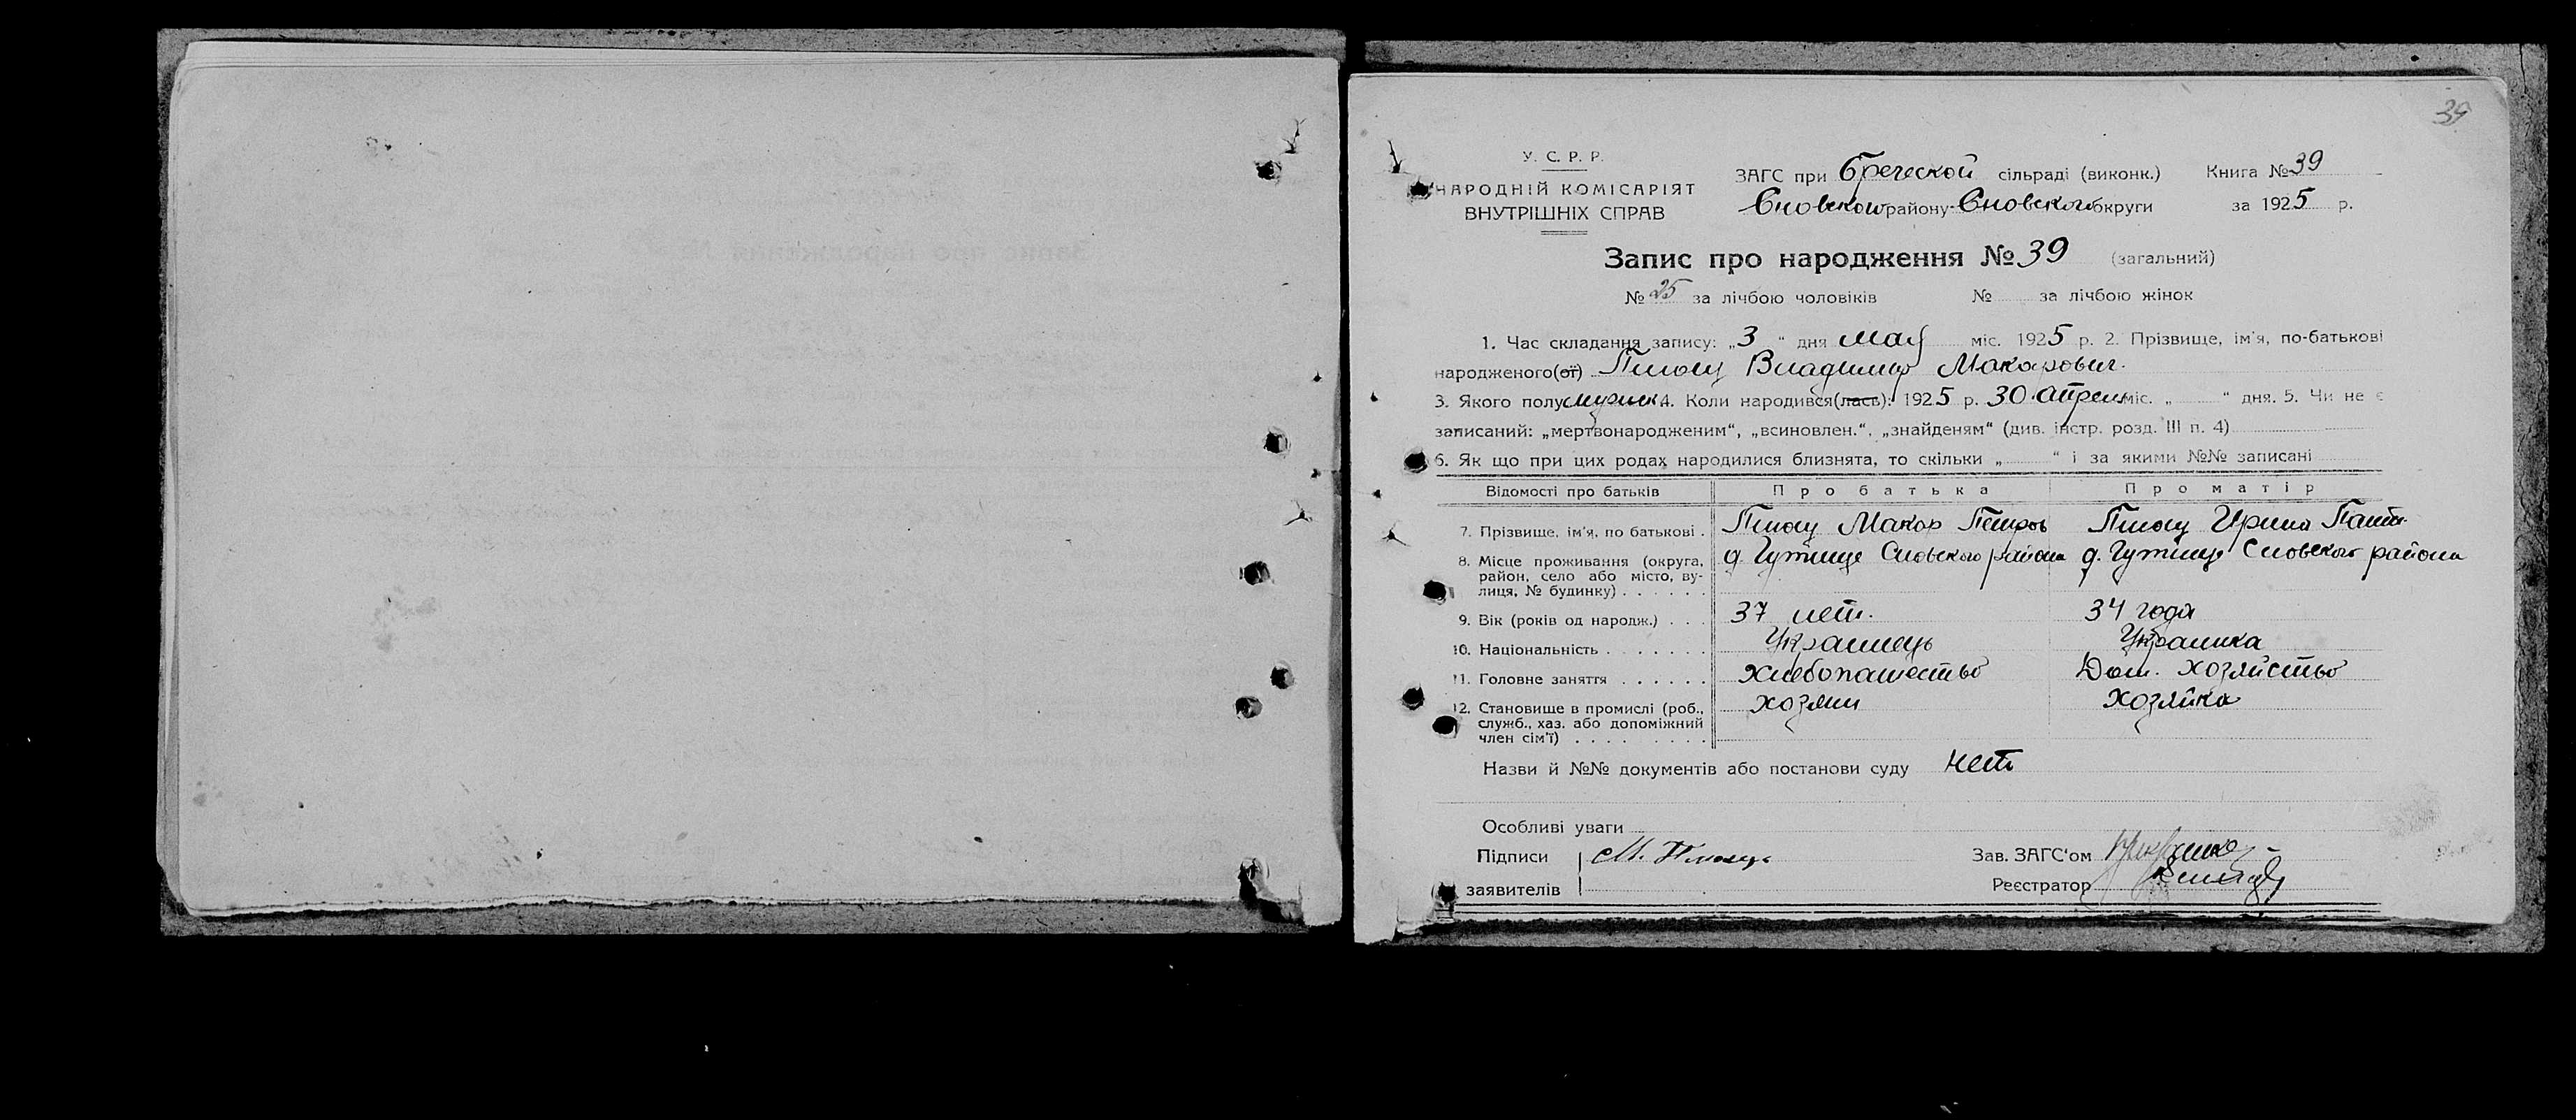 39
У. С. Р. Р.
НАРОДНІЙ КОМІСАРІЯТ
ВНУТРІШНІХ СПРАВ
ЗАГС при сільраді (виконк.) Книга № 39
Сновского району Сновского округи за 1925 р.
Запис про народження № 39 (загальний)
№ 25 за лічбою чоловіків № за лічбою жінок
1. Час складання запису: „3“ дня мая міс. 1925 р. 2. Прізвище, ім'я, по-батькові
народженого(ої) Владимир Макарович
3. Якого полу мужск 4. Коли народився(лась): 1925 р. 30 Апреля міс. „ “ дня. 5. Чи не є
записаний: „мертвонародженим“, „всиновлен.“, „знайденям“ (див. інстр. розд. III п. 4)
6. Як що при цих родах народилися близнята, то скільки „ “ і за якими №№ записані
Відомості про батьків Про батька Про матір
7. Прізвище, ім'я, по батькові . Макар Петров Ирина
8. Місце проживання (округа, д. Гутище Сновского района д. Гутище Сновского района
район, село або місто, ву-
лиця, № будинку) . . . . . .
9. Вік (років од народж.) . . . 37 лет. 34 года
10. Національність . . . . . . . Украинець Украинка
11. Головне заняття . . . . . . Хлебопашество Дом. хозяйство
12. Становище в промислі (роб., хозяин хозяйка
служб., хаз. або допоміжний
член сім'ї) . . . . . . . . .
Назви й №№ документів або постанови суду нет
Особливі уваги
Підписи М. Зав. ЗАГС'ом
заявителів Реєстратор